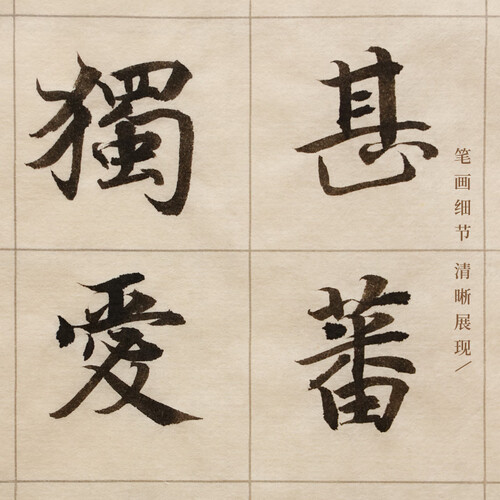 甚蕃
獨愛
笔画细节 清晰展现/